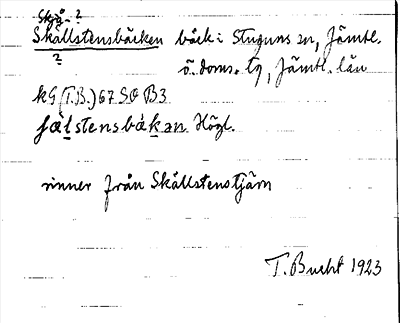 Skjä- ?
Skällstensbäcken bäck i Stuguns sn, Jämtl.
?
ö. doms. tg, Jämtl. län
kG (T.B.) 67 SO B3
ʃälstensbäkan Högl.
rinner från Skällstenstjärn
T. Bucht 1923